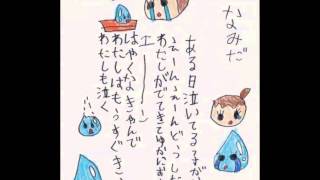 なみだ
ある日泣いてるすがが
ふえーんふえーんどうした
わたしがでてきてゆかにぎ
エーーーー
はやくなきやんで
わたしはもうすぐき
わたしも泣く